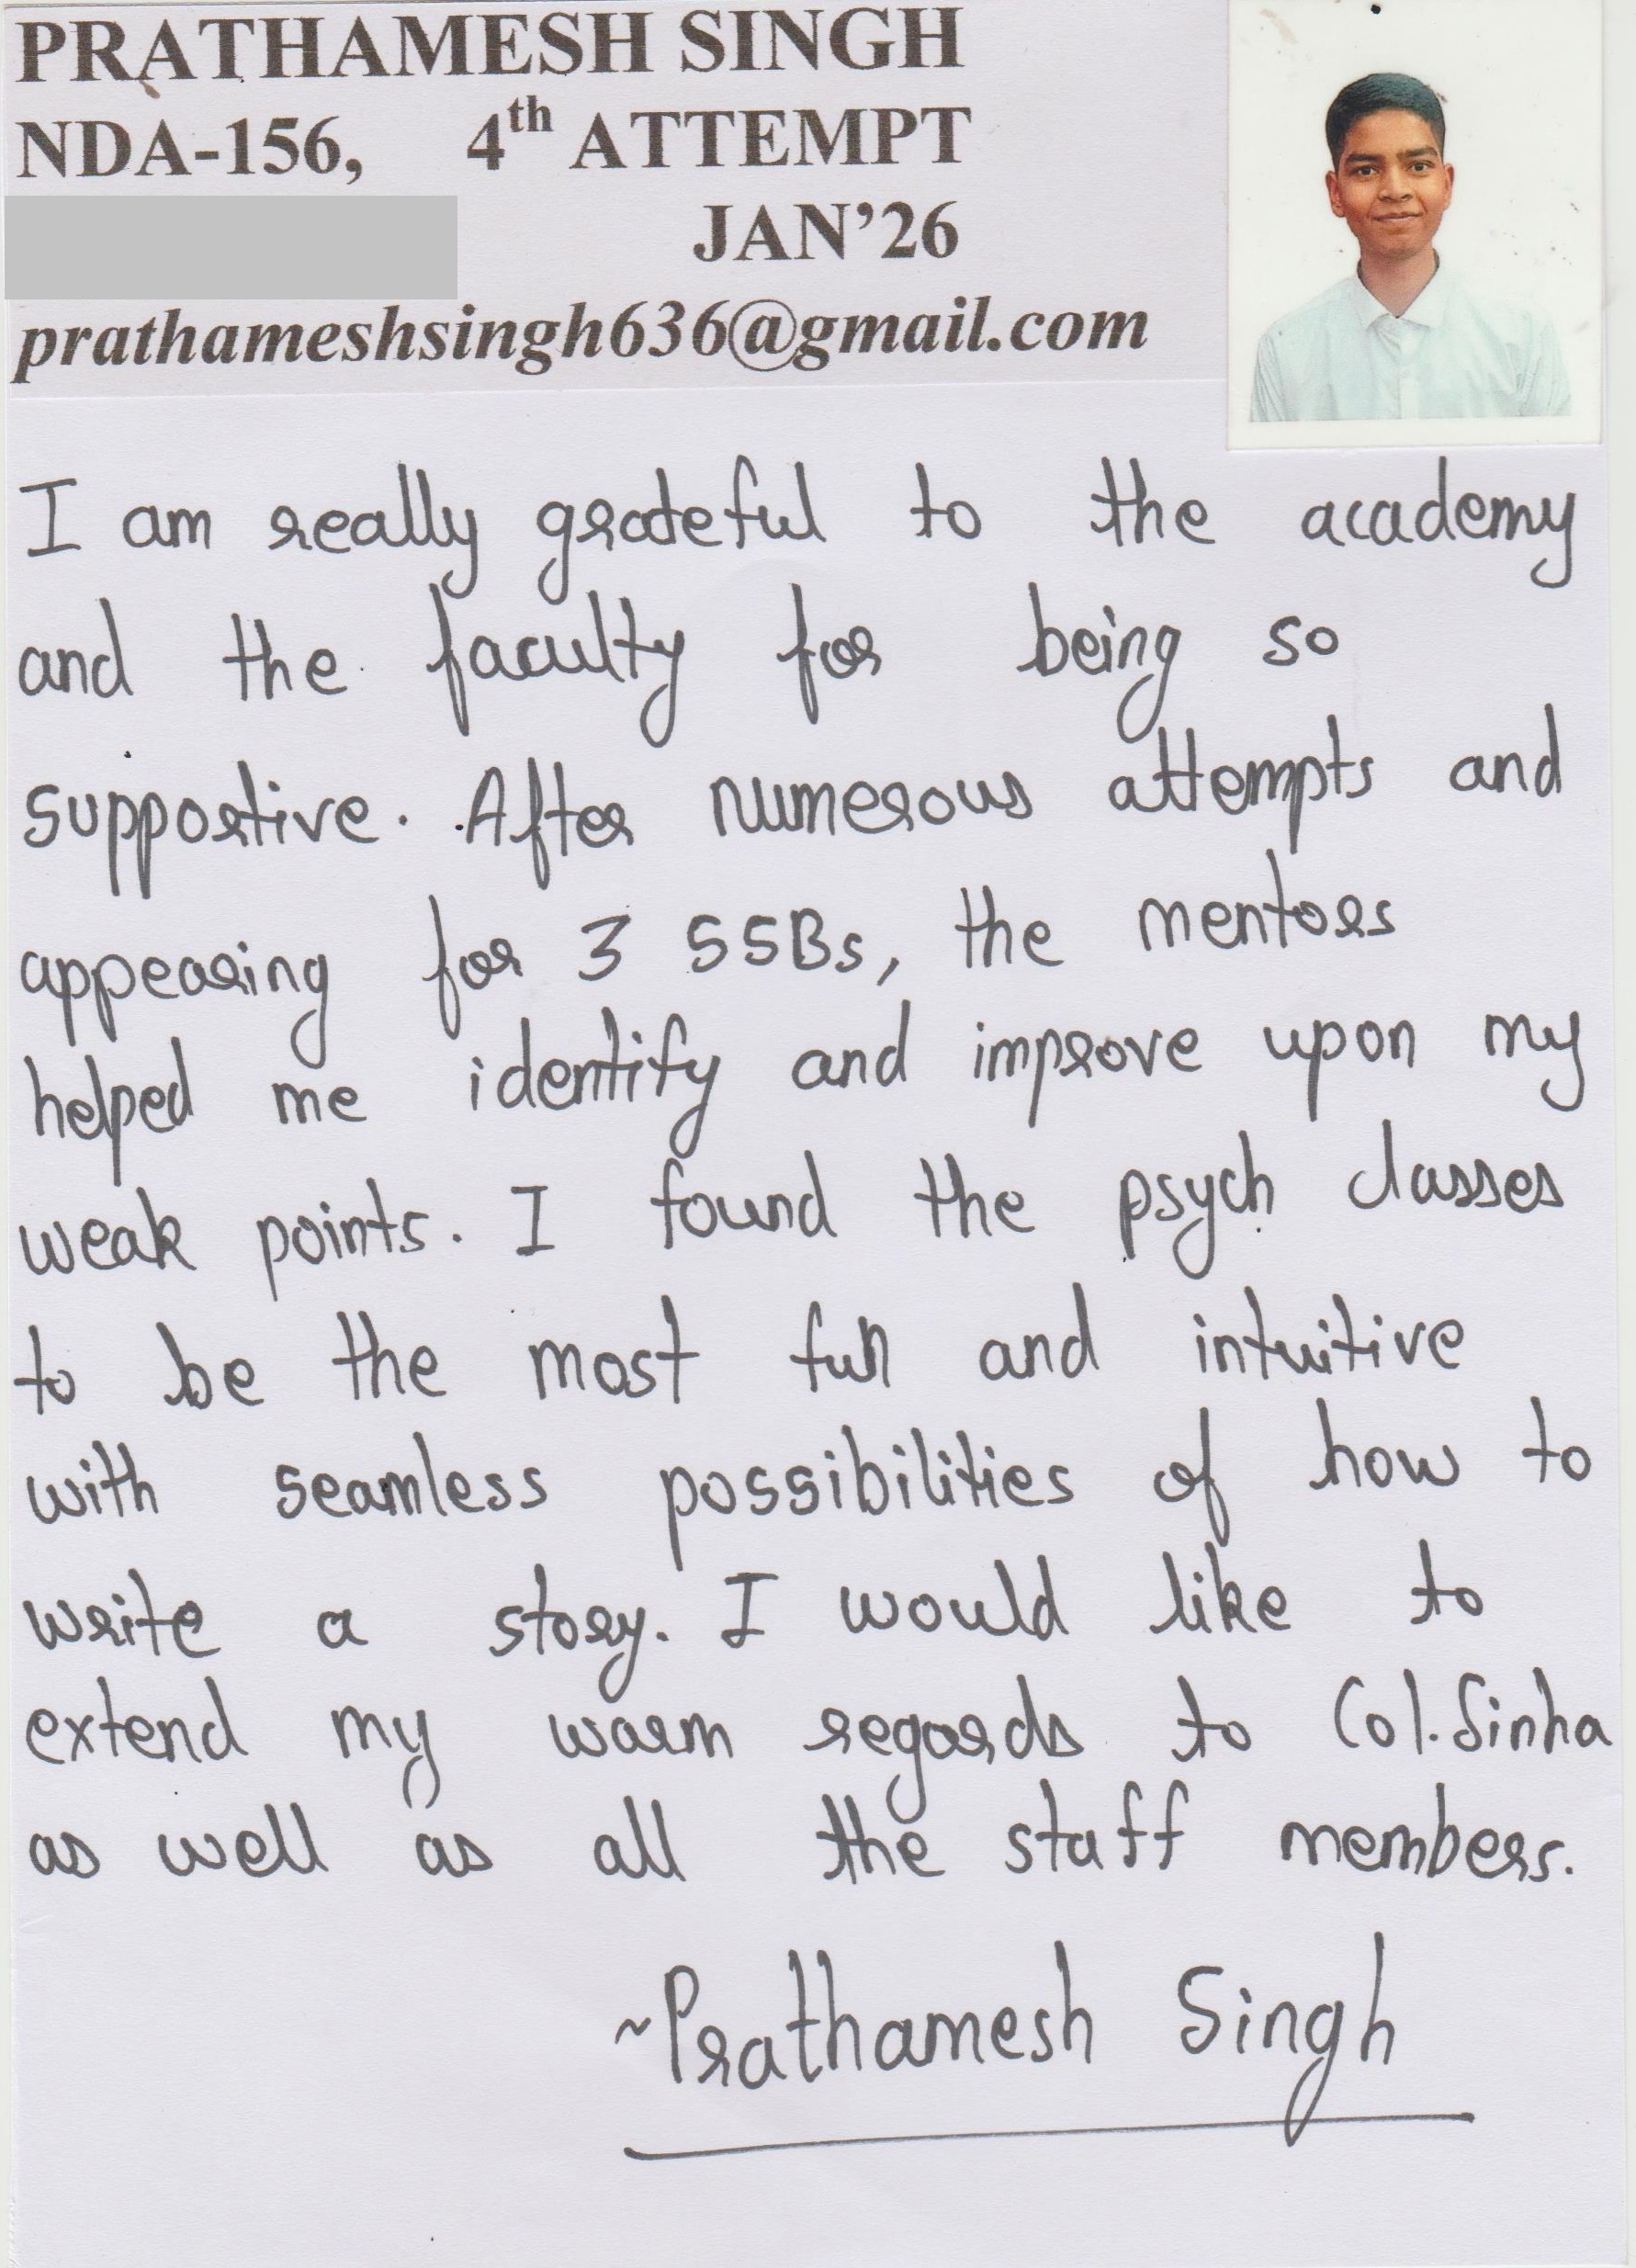 PRATHAMESH SINGH
NDA-156, 4th ATTEMPT
JAN'26
prathameshsingh636@gmail.com
I am really grateful to the academy
and the faculty for being so
supportive. After numerous attempts and
appearing for 3 SSBs, the mentors
helped me identify and improve upon my
weak points. I found the psych classes
to be the most fun and intuitive
with seamless possibilities of how to
write a story. I would like to
extend my warm regards to Col. Sinha
as well as all the staff members.
~Prathamesh Singh